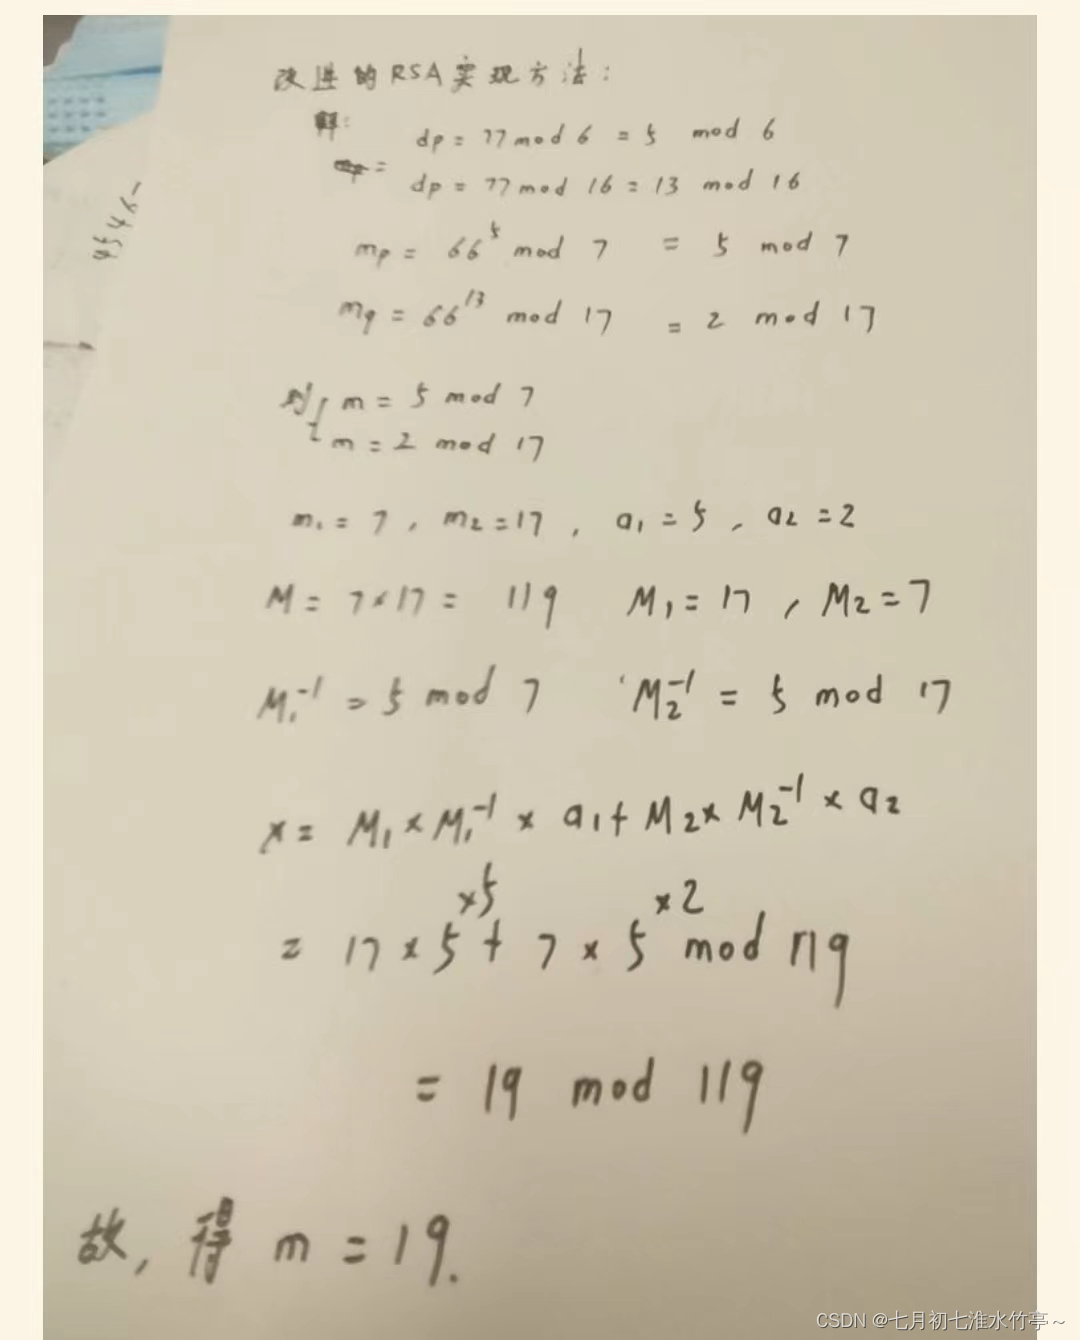 改进的RSA实现方法:
解: dp = 77 mod 6 = 5 mod 6
= dp = 77 mod 16 = 13 mod 16
mp = 66^5 mod 7 = 5 mod 7
mq = 66^13 mod 17 = 2 mod 17
则{ m = 5 mod 7
m = 2 mod 17
m₁ = 7, m₂ = 17, a₁ = 5, a₂ = 2
M = 7×17 = 119 M₁ = 17, M₂ = 7
M₁⁻¹ = 5 mod 7 M₂⁻¹ = 5 mod 17
x = M₁ × M₁⁻¹ × a₁ + M₂ × M₂⁻¹ × a₂
= 17 × 5 ×5 + 7 × 5 ×2 mod 119
= 19 mod 119
故, 得 m = 19.
CSDN @七月初七淮水竹亭~